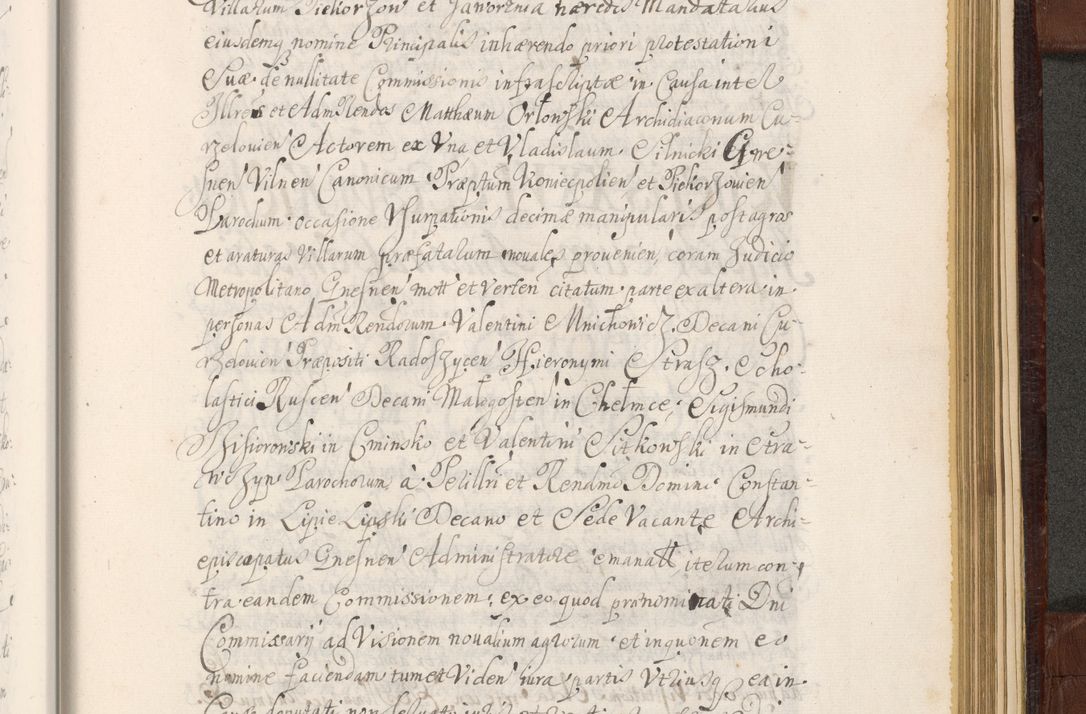 Villarum Piekorzow et Jaworznia hæredis Mandatarius
eiusdemq nomine Principalis inhærendo priori protestationi
Suæ de nullitate Commissionis infrascriptæ in Causa inter
Illres et Adm Rendos Matthæum Orłowski Archidiaconum Cu-
rzelovien Actorem ex Una et Vladislaum Silnicki Gne-
snen Vilnen Canonicum Præptum Koniecpolien et Piekorzovien
Parochum occasione Usurpationis decimæ manipularis post agros
et araturas Villarum præfatarum novales provenien coram Judicio
Metropolitano Gnesnen mott et verten citatum parte ex altera in
personas Adm Rendorum Valentini Mnichowicz Decani Cu-
rzelovien Præpositi Radoszycen Hieronymi Strasz Scho-
lastici Ruscen Decani Małogosten in Chełmce, Sigismundi
in Cminsko et Valentini Sitkowski in Stra-
wczyn Parochorum à Perillri et Rendmo Domino Constan-
tino in Lipie Lipski Decano et Sede Vacante Archi-
episcopatus Gnesnen Administratore emanatt iterum con-
tra eandem Commissionem, ex eo quod prænominati Dni
Commissarij ad Visionem novalium agrorum et in quonem eo
nomine faciendam tum et Viden iura partis Utriusq ea in
Causa deputati non